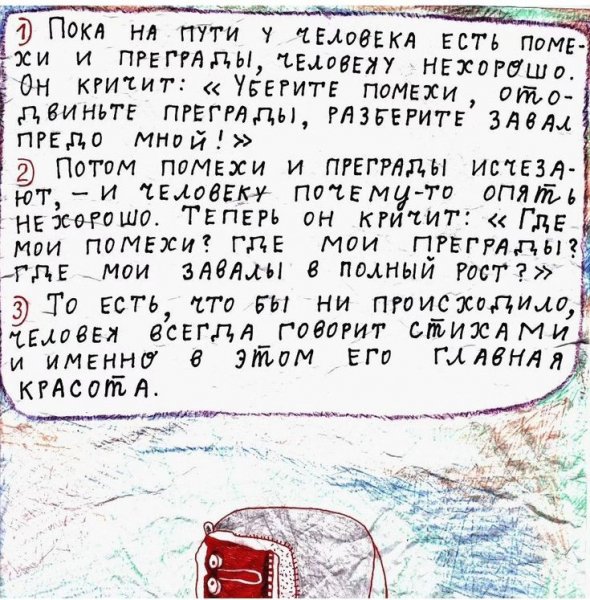 1) Пока на пути у человека есть поме-
хи и преграды, человеку нехорошо.
Он кричит: « Уберите помехи, ото-
двиньте преграды, разберите завал
предо мной! »
2) Потом помехи и преграды исчеза-
ют, – и человеку почему-то опять
нехорошо. Теперь он кричит: « Где
мои помехи? Где мои преграды?
Где мои завалы в полный рост? »
3) То есть, что бы ни происходило,
человек всегда говорит стихами
и именно в этом его главная
красота.